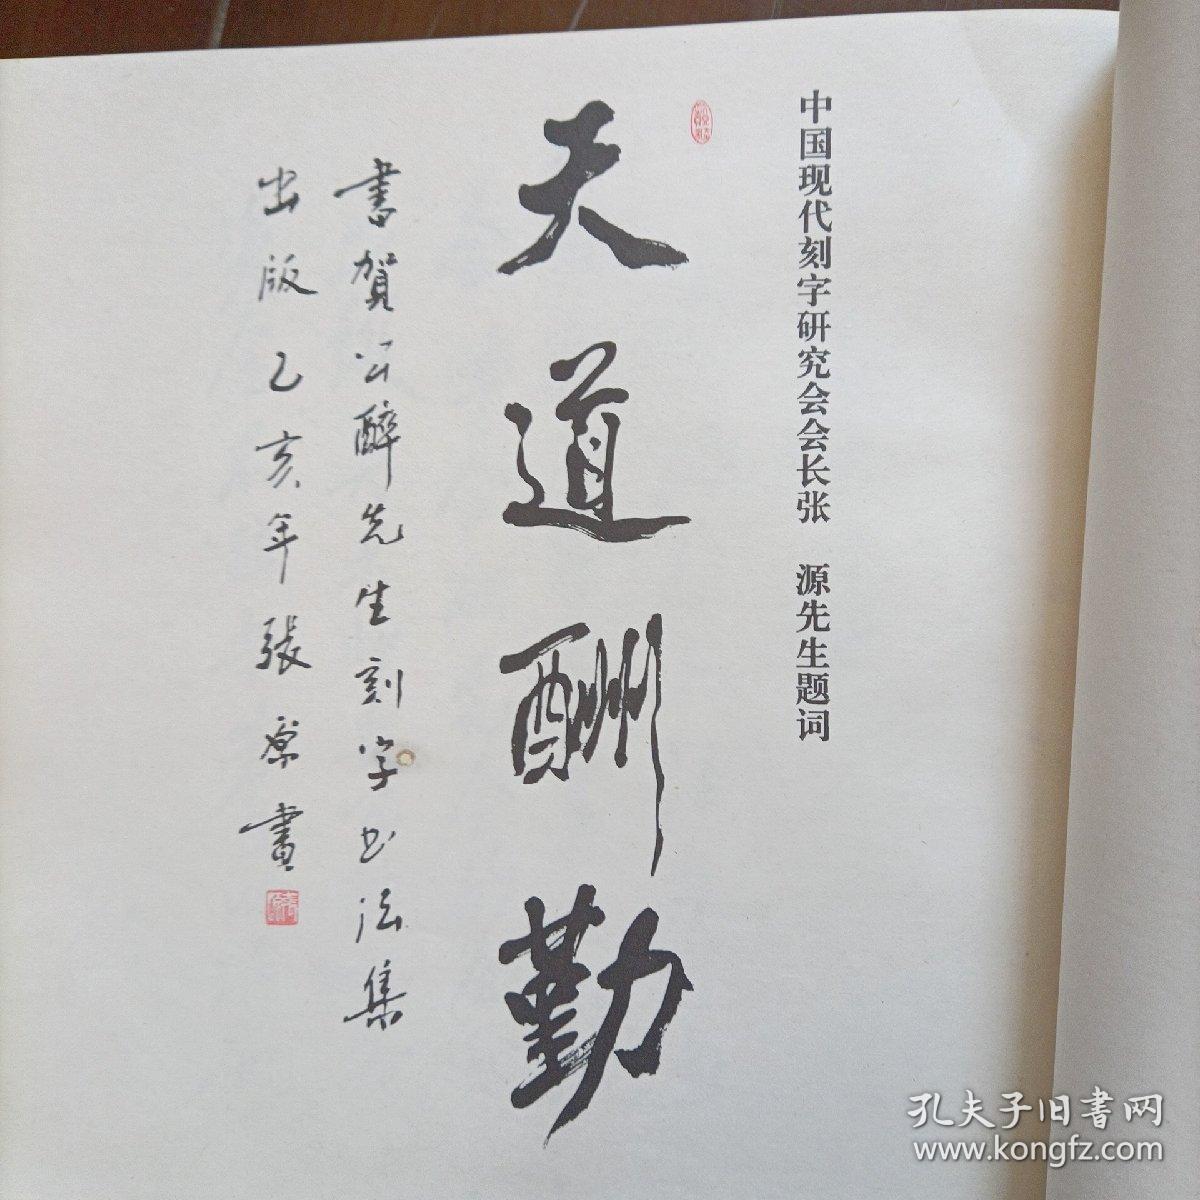 中国现代刻字研究会会长张 源先生题词
天道酬勤
書賀公醉先生刻字书法集
出版乙亥年張原書
孔夫子旧書网
www.kongfz.com